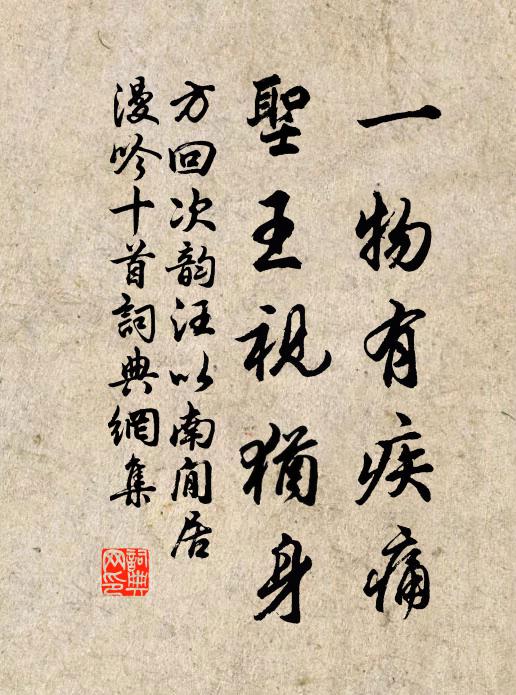 一物有疾痛
聖王視猶身
方回次韵汪以南閒居
漫吟十首詞典網集
詞典
网印